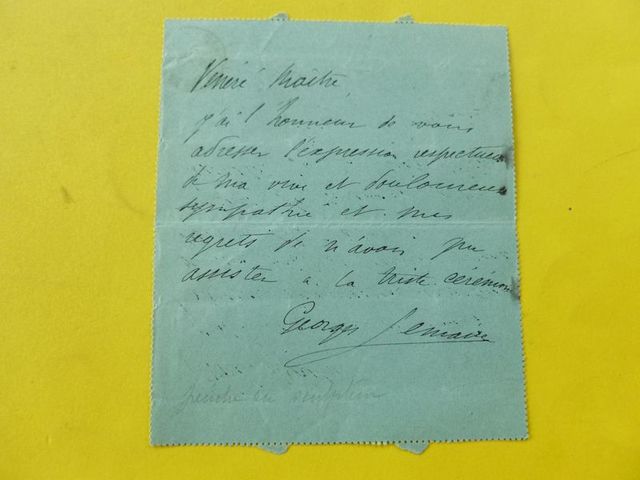 Vénéré Maître,
j'ai l'honneur de vous
adresser l'expression respectueuse
de ma vive et douloureuse
sympathie et mes
regrets de n'avoir pu
assister a la triste cérémonie
Georges Lemaire
peintre en sculpture